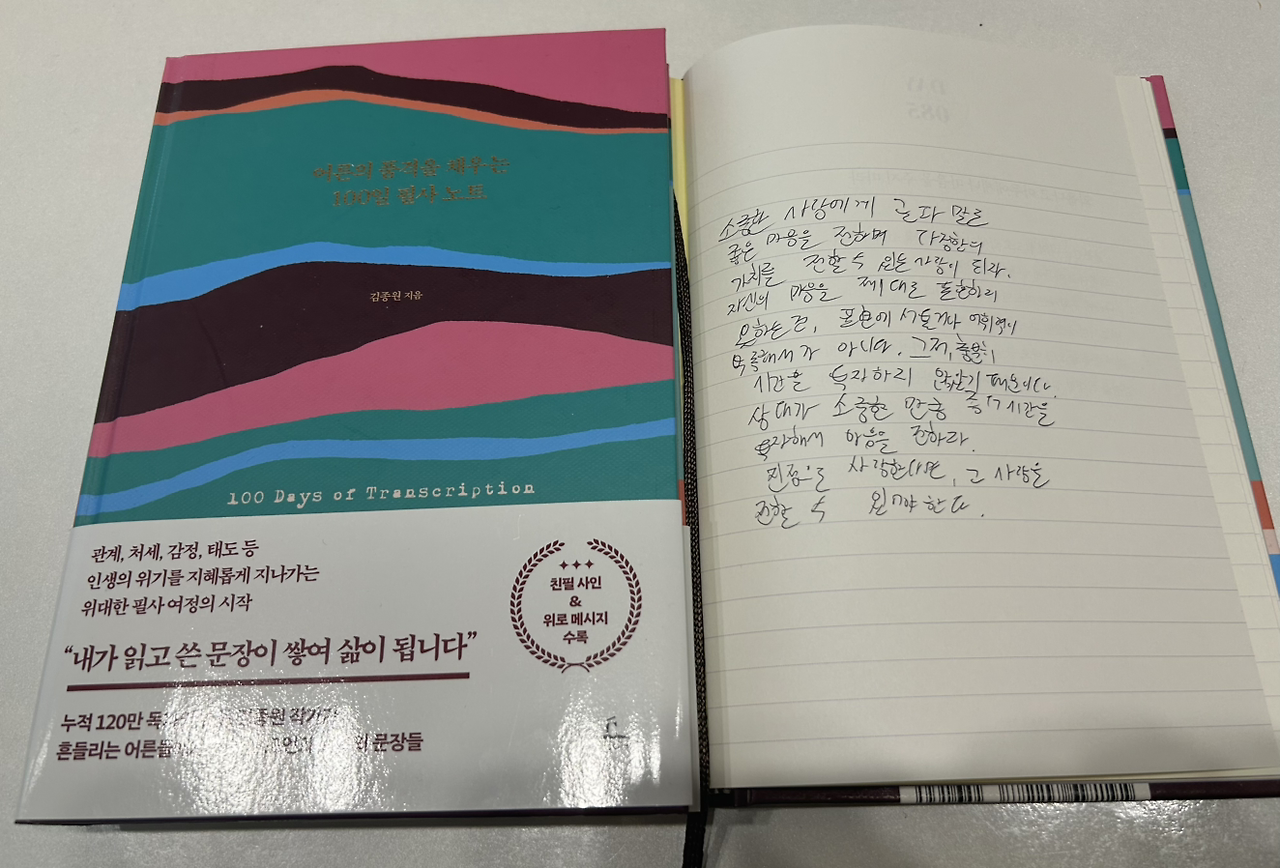 어른의 품격을 채우는
100일 필사 노트
김종원 지음
100 Days of Transcription
관계, 처세, 감정, 태도 등
인생의 위기를 지혜롭게 지나가는
위대한 필사 여정의 시작
“내가 읽고 쓴 문장이 쌓여 삶이 됩니다”
친필 사인
&
위로 메시지
수록
누적 120만 독자 김종원 작가
흔들리는 어른들 문장들
소중한 사람에게 글과 말로
좋은 마음을 전하며 다정함의
가치를 전할 수 있는 사람이 되라.
자신의 마음을 제대로 표현하지
못하는 건, 표현에 서툴거나 어휘력이
부족해서가 아니다. 그저, 충분히
시간을 투자하지 않았기 때문이다.
상대가 소중한 만큼 시간을
투자해서 마음을 전하라.
진정으로 사랑한다면, 그 사랑을
전할 수 있어야 한다.